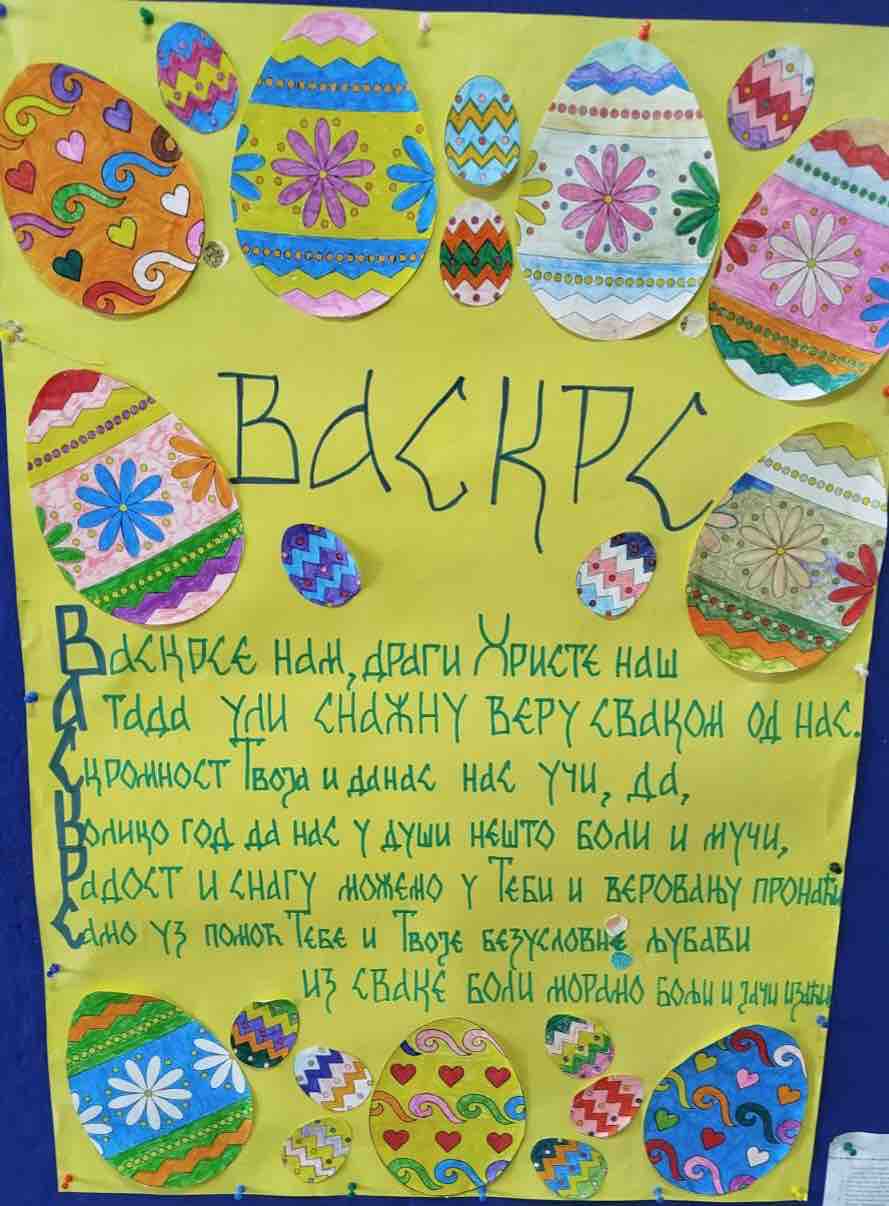 ВАСКРС
Васкрсе нам, драги Христе наш
А тада ули снажну веру сваком од нас.
Скромност Твоја и данас нас учи, да,
Колико год да нас у души нешто боли и мучи,
Радост и снагу можемо у Теби и веровању пронаћи
Само уз помоћ Тебе и Твоје безусловне љубави
из сваке боли морамо бољи и јачи изаћи